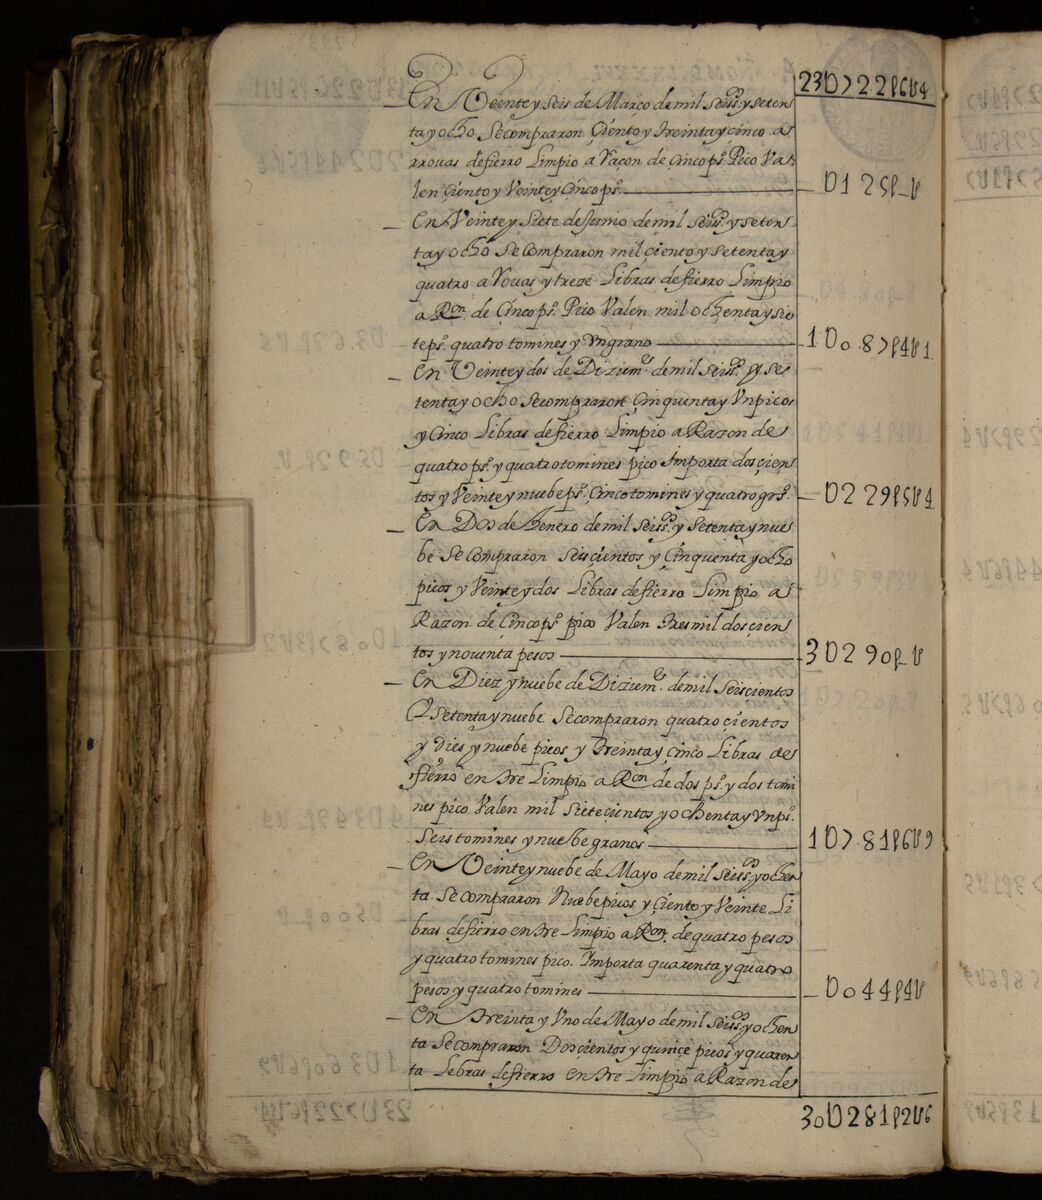 23U722p6U4
En Veinte y seis de Março de mil seissº y seten
ta y ocho Se compraron Çiento y treinta y cinco a
rrouas de fierro Limpio a Raçon de Cinco ps. Pico Va
len Çiento y Veinte y Cinco ps. U125p_U
En Veinte y Siete de Junio de mil seissº y seten
ta y ocho se compraron mil çiento y setenta y
quatro aRouas y treze Libras de fierro Limpio
a Ron. de Çinco ps. Pico Valen mil ochenta y sie
te ps. quatro tomines y Vn grano 1U087p4U1
En Veinte y dos de Diziem.e de mil seissº y se
tenta y ocho se compraron Çinquenta y Vn picos
y Cinco Libras de fierro Limpio a Razon de
quatro ps. y quatro tomines pico Importa dosçien
tos y Veinte y nuebe ps. Çinco tomines y quatro grs. U229p5U4
En Dos de henero de mil seissº y Setenta y nue
be Se compraron Seiscientos y Çinquenta y ocho
picos y Veinte y dos Libras de fierro Limpio a
Razon de Çinco ps. pico Valen tres mil dosçien
tos y nouenta pesos 3U290p_U
En Diez y nuebe de Diziem.e de mil seiscientos
Y setenta y nuebe Se compraron quatro çientos
y dies y nuebe picos y treinta y çinco Libras de
fierro entre Limpio a Ron de dos ps. y dos tomi
nes pico Valen mil sieteçientos y ochenta y Vn ps.
Seis tomines y nuebe granos 1U781p6U9
En Veinte y nuebe de Mayo de mil Seissº y ochen
ta Se compraron Nuebe picos y Çiento y Veinte Li
bras de fierro entre Limpio a Ron. de quatro pesos
y quatro tomines pico. Importa quarenta y quatro
pesos y quatro tomines U044p4U
En treinta y Vno de Mayo de mil Seissº y ochen
ta Se compraron Dosçientos y quinçe picos y quaren
ta Lebras de fierro entre Limpio a Razon de
30U281p2U6